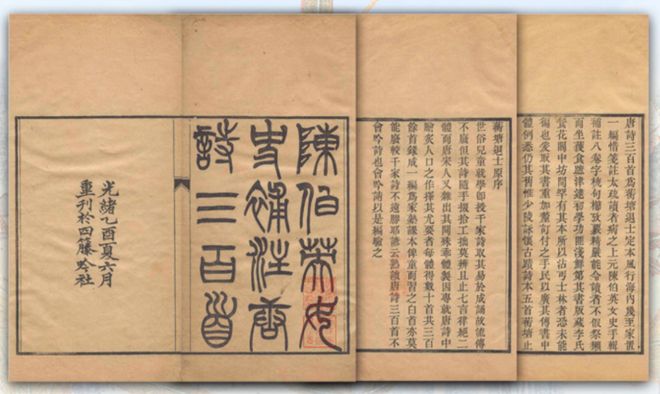 陳伯英女
史補注唐
詩三百首
光緒乙酉夏六月
重刊於四籐吟社
蘅塘退士原序
世俗兒童就學即授千家詩取其易於成誦故流傳
不廢但其詩隨手掇拾工拙莫辨且止七言律絕二
體而唐宋人又雜出其間殊乖體製因專就唐詩中
膾炙人口之作擇其尤要者每體得數十首共三百
餘首錄成一編為家塾課本俾童而習之白首亦莫
能廢較千家詩不遠勝耶諺云熟讀唐詩三百首不
會吟詩也會吟請以是編驗之
唐詩三百首為蘅塘退士定本風行海內幾至家置
一編惜箋註太疏讀者病之上元陳伯英女史手輯
補註八卷字梳句櫛攷覈精嚴能令讀者不假祭獺
而坐獲食蹠津逮初學功匪淺鮮第其書版藏李氏
套花閣中坊間罕有其本所以沾丐士林者恐未能
徧也爰取其書重加釐訂付之手民以廣其傳書中
體例悉仍其舊惟少陵詠懷古蹟詩本五首蘅塘止